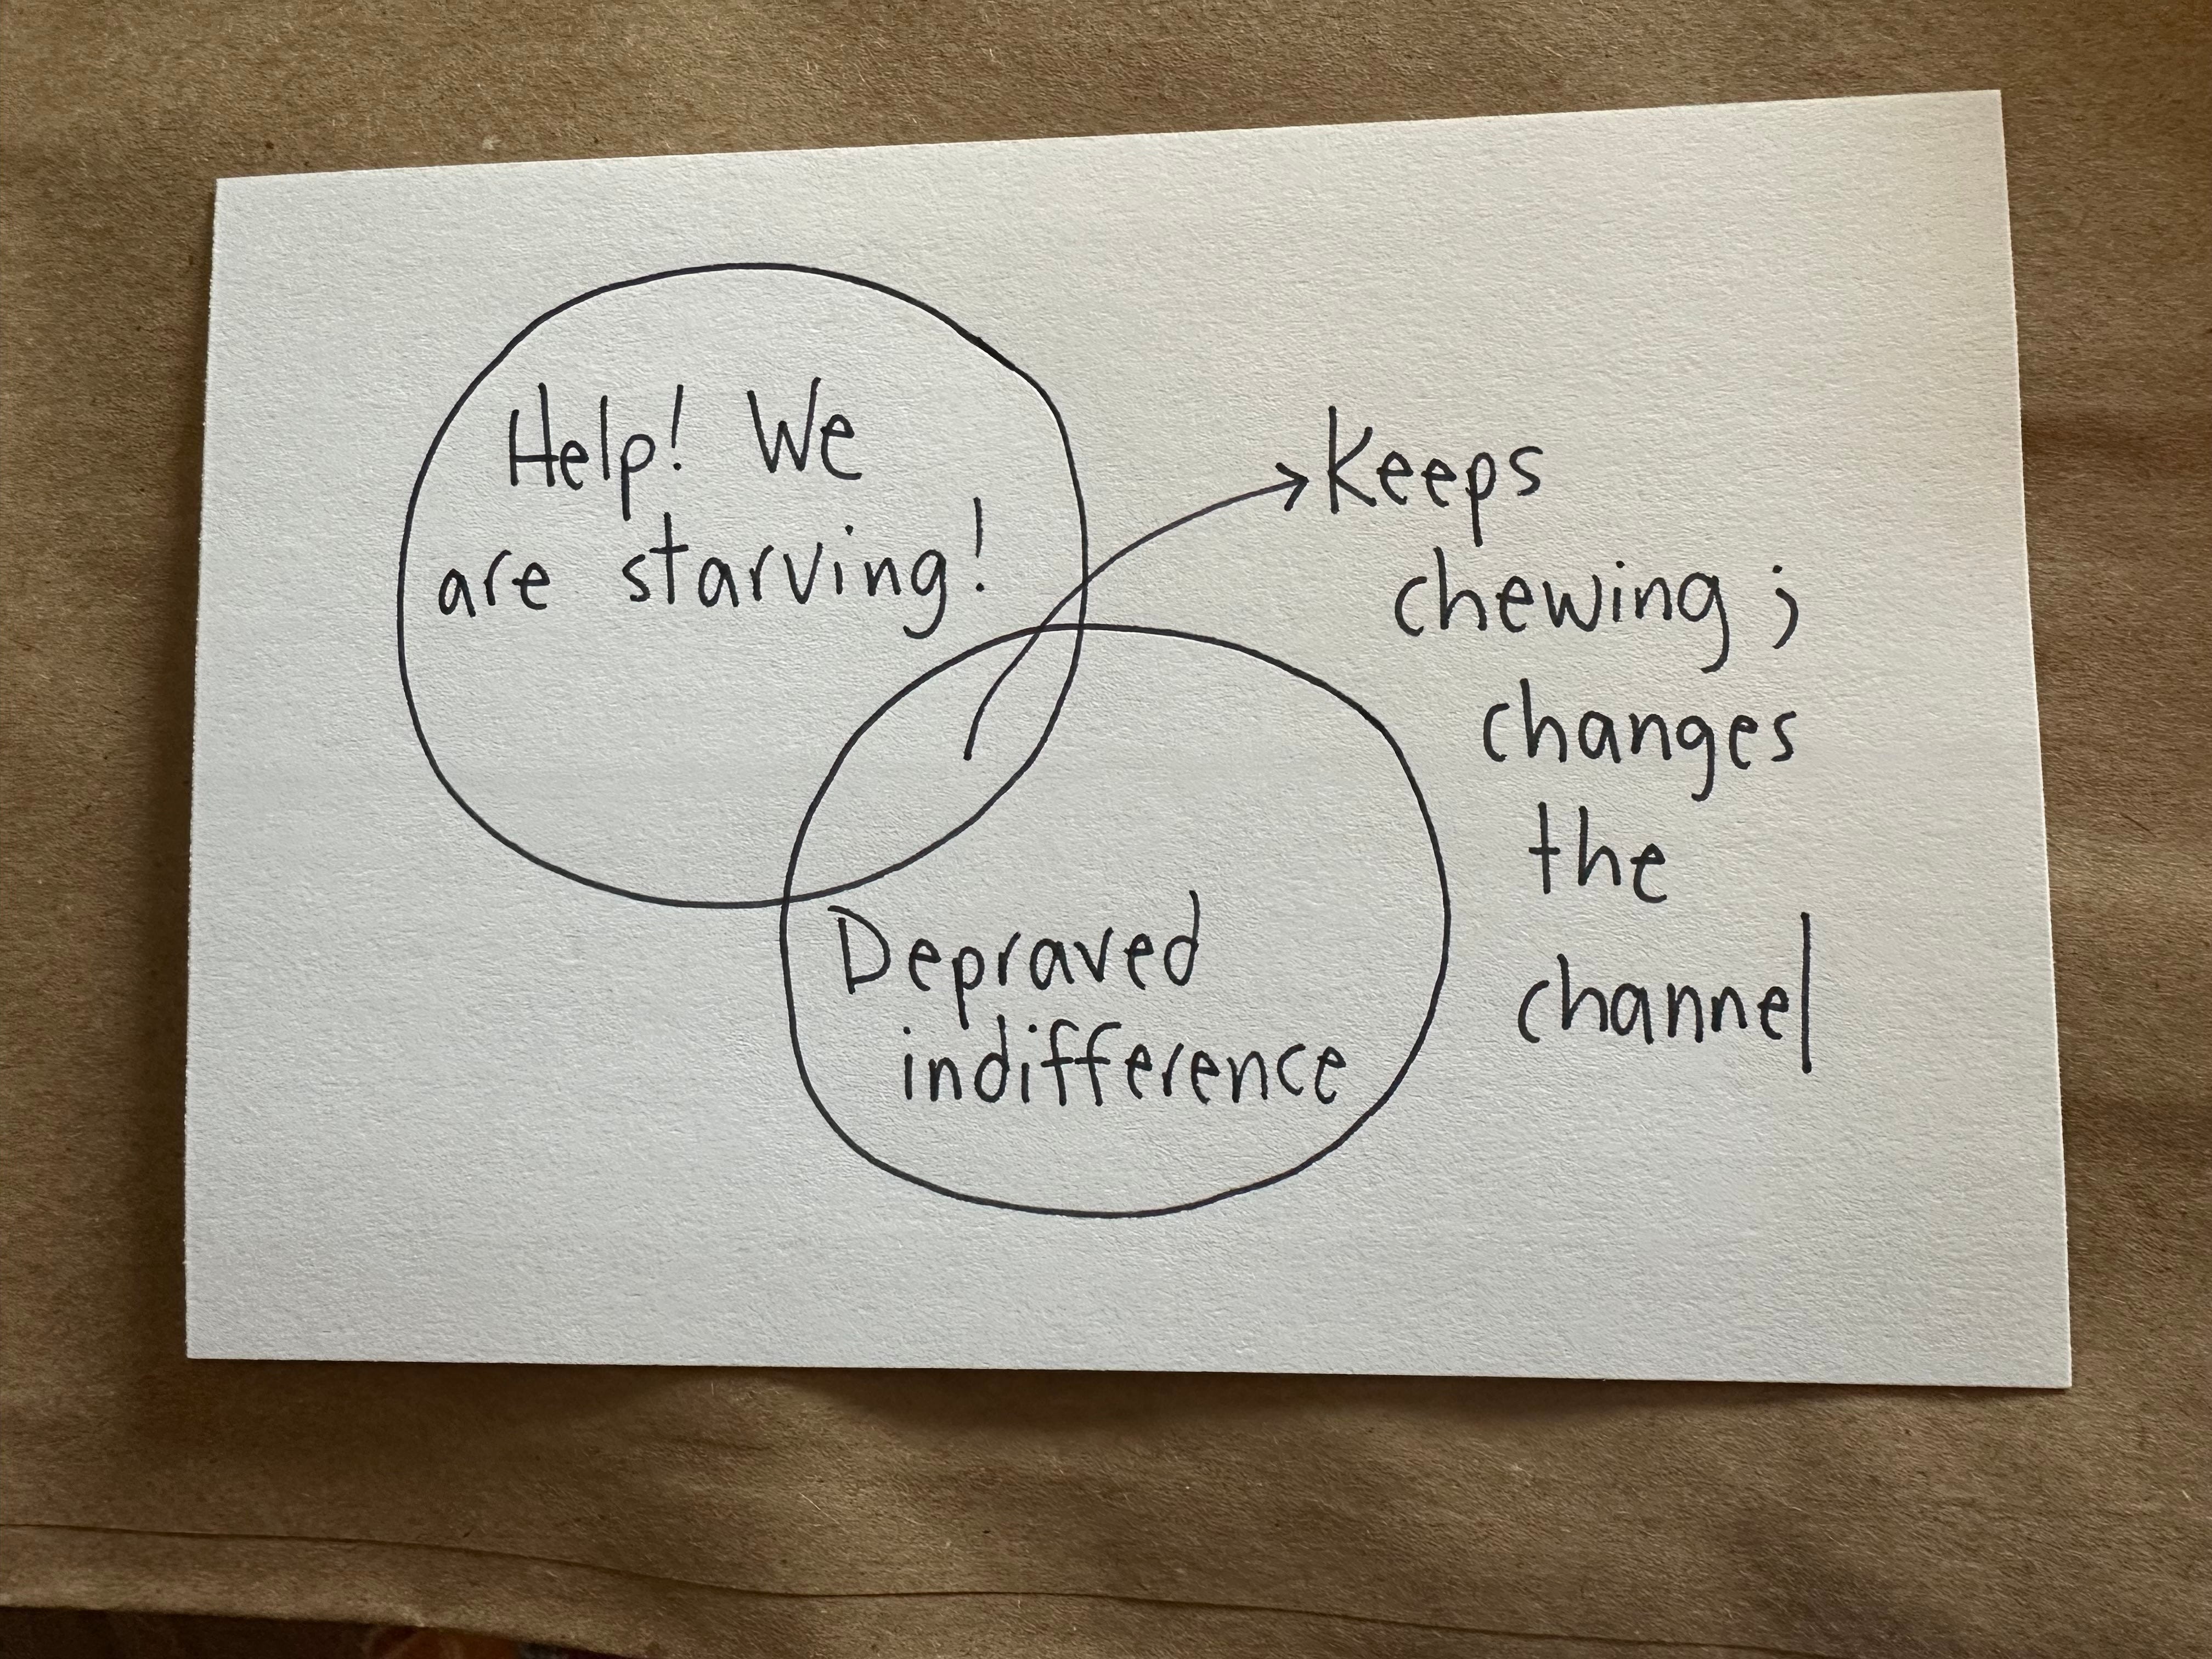 Help! We
are starving!
Keeps
chewing;
changes
the
channel
Depraved
indifference